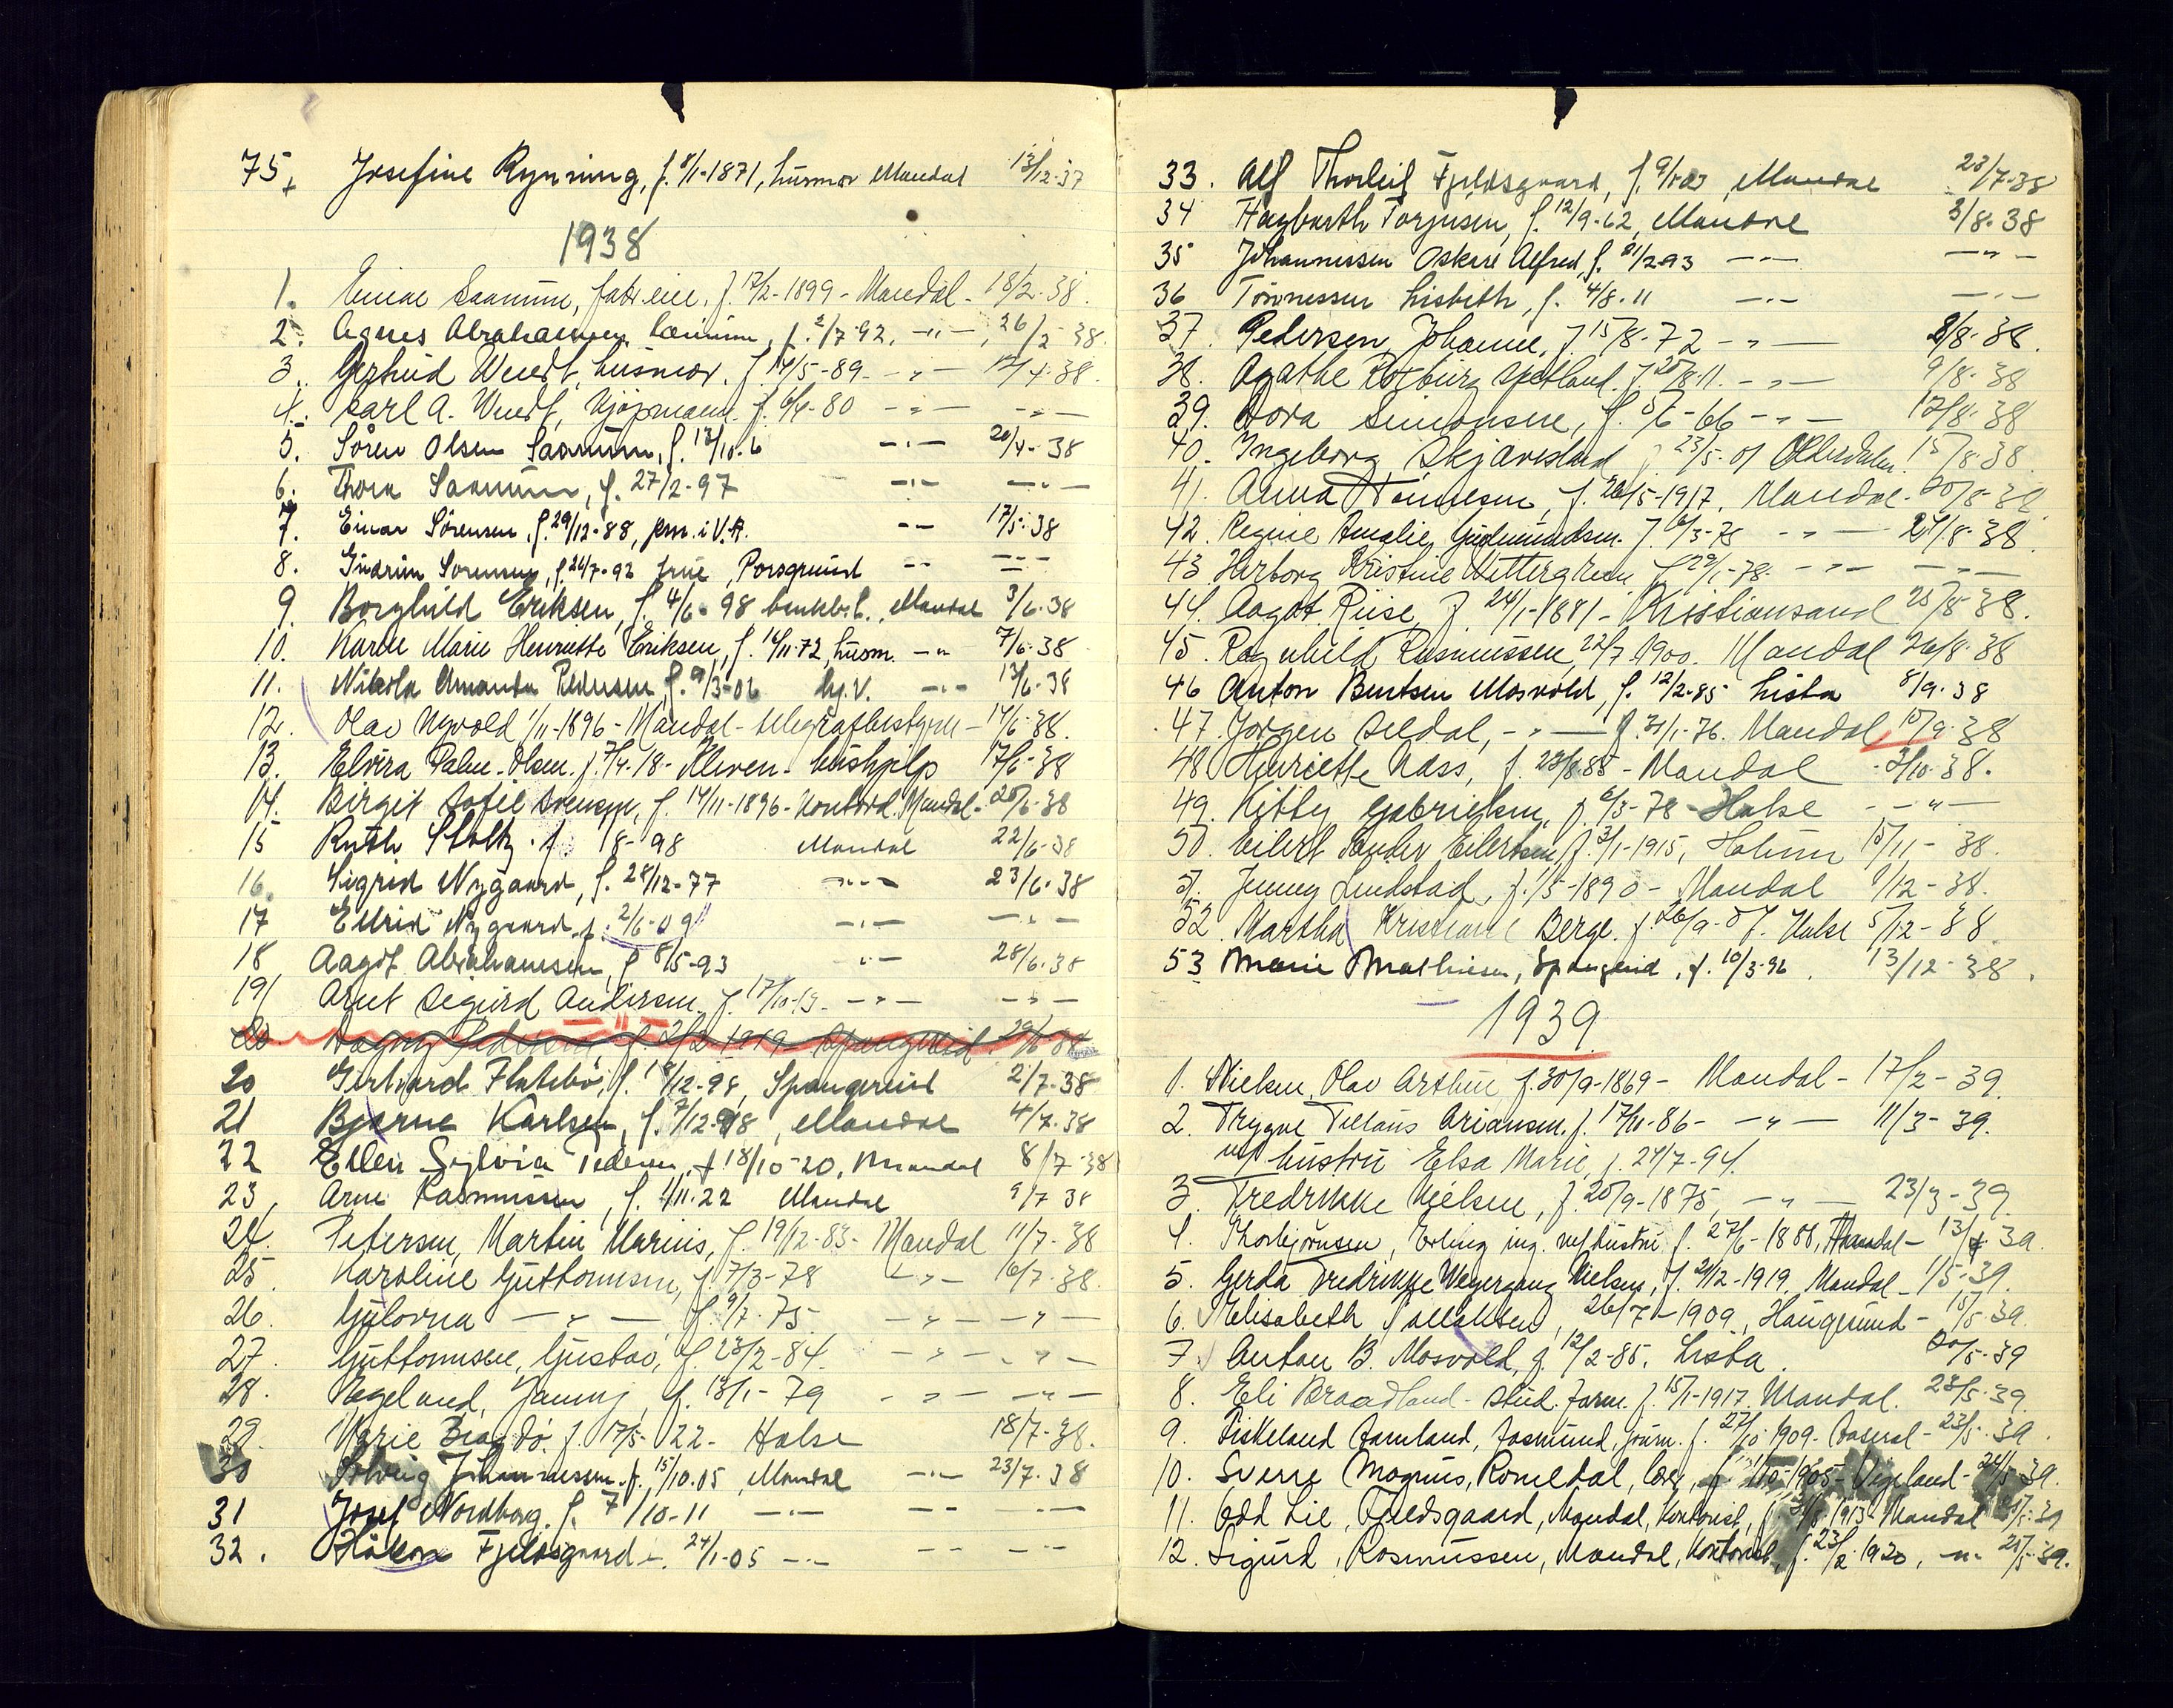 75. Josefine Rynning, f. 8/1-1871, husmor Mandal 13/12-37
1938
1. Einar Saanum, f. 17/2-1899 - Mandal - 18/2-38.
2. Agnes Abrahamsen, f. 2/7-92, -"- 26/2-38.
3. Gertrud Wendt, husmor, f. 14/5-89 -"- 12/4-38.
4. Karl A. Wendt, kjøpmann f. 6/4-80 -"- -"-
5. Sören Olsen Saanum, f. 13/10-6 -"- 20/4-38
6. Thora Saanum, f. 27/2-97 -"- -"-
7. Einar Sörensen, f. 29/12-88, i V.A. -"- 17/5-38
8. Gudrun Sorensen, f. 26/7-92 frue, Porsgrund -"- -"-
9. Borghild Eriksen, f. 4/6-98 Mandal 3/6-38
10. Karen Marie Henriette Eriksen, f. 16/11-72, husm. -"- 7/6-38
11. Amanda Pedersen, f. 9/3-06 -"- 13/6-38
12. Olav 1/11-1896 - Mandal - telegrafbestyrer - 14/6-38.
13. Elvira Palm-Olsen. f. 7/4-18 - Kleven - hushjelp 17/6-38
14. Birgit Sofie Svensen, f. 14/11-1896 - Mandal - 20/6-38
15 Ruth Stoltz. f. 18-98 Mandal 22/6-38
16. Sigrid Nygaard, f. 28/12-77 -"- 23/6-38
17 Nygaard. f. 2/6-09 -"- -"-
18 Aagot Abrahamsen, f. 8/5-93 -"- 28/6-38
19 Arnt Sigurd Andersen. f. 17/10-13 -"- -"-
20. Dagny Pedersen, f. 2/2-1919 - Spangereid
20 Gerhard Flatebö, f. 18/12-98, Spangereid 2/7-38
21 Bjarne Karlsen, f. 7/12-98, Mandal 4/7-38
22 Ellen Sylvia Pedersen, f. 18/10-20, Mandal 8/7-38
23, Arne Rasmussen, f. 1/11-22 Mandal 9/7 38
24. Petersen, Martin Marius, f. 19/12-83 - Mandal 11/7-38
25. Karoline Guttormsen, f. 7/3-78 -"- 16/7-38.
26. Gulovna -"- f. 9/7-75 -"- -"-
27. Guttormsen, Gustav, f. 23/2-84. -"- -"-
28. Vegeland, f. 13/1-79 -"- -"-
29. Marie f. 17/5-22 - Halse 18/7-38.
30 Solveig Johannessen. f. 15/10-05, Mandal -"- 23/7-38
31 Josef Nordborg. f. 7/10-11 -"- -"- -"-
32. Håkon Fjeldsgaard - 24/1-05 -"- -"- -"-
33. Alf Thorleif Fjeldsgaard, f. 9/1-03, Mandal 28/7-38
34 Hagbarth Torjusen, f. 12/9-62, Mandal 3/8-38
35 Johannessen Oskar Alfred, f. 21/2-93 -"- -"-
36 Tönnessen Lisbeth, f. 4/8-11 -"- -"-
37. Pedersen, Johanne, f. 15/8-72 -"- 8/8-38.
38. Agathe f. 25/8-11. -"- 9/8-38
39. Dora Simonsen, f. -66 -"- 12/8-38
40. Ingeborg Skjævesland f. 23/5-01 15/8-38.
41. Anna Tönnesen, f. 26/5-1917, Mandal - 20/8-38
42. Regine Amalie Gudmundsen. f. 6/3-78 -"- 24/8-38
43 Herborg Kristine Wettergreen f. 29/1-78 - -"- -"-
44. Aagot Riise, f. 24/1-1881 - Kristiansand 25/8-38.
45. Ragnhild Rasmussen, 22/7 1900. Mandal 26/8-38
46 Anton Berntsen Mosvold, f. 12/2-85 Lista 8/9-38
47. Jorgen Seldal, -"- f. 31/1-76. Mandal, 10/9-38
48 Henriette Næss, f. 28/8-85 - Mandal - 3/10-38.
49. Kitty Gabrielsen, f. 6/3-78 - Halse -"-
50. Eilert Sander Eilertsen, f. 3/1-1915, Holum 15/11-38.
51. Jenny Lindstad, f. 1/5-1890 - Mandal 1/12-38.
52. Martha Kristiane Berge. f. 26/9-07. Halse 5/12-38
53 Marie Mathiesen, Spangereid, f. 10/3-96. 13/12-38.
1939
1. Nielsen, Olav Arthur f. 30/9-1869 - Mandal - 17/2-39.
2. Trygve Tellaus Ariansen. f. 17/11-86 - -"- 11/3-39.
m/ hustru Elsa Marie, f. 24/7-94.
3. Fredrikke Nielsen, f. 20/9-1875, -"- 23/3-39.
4. Thorbjörnsen, Erling ing. m/hustru f. 27/6-1888, Mandal - 13/4 39.
5. Gerda Fredrikke Weyergang Nielsen, f. 24/2-1919. Mandal - 1/5-39.
6. Elisabeth Tallaksen, 26/7-1909, Haugesund - 15/5 39.
7. Anton B. Mosvold, f. 12/2-85. Lista. 20/5-39
8. Eli Braadland - stud. farm. f. 15/1-1917. Mandal. 23/5-39.
9. Fiskeland Aamland, Aasmund, journ. f. 27/10-1909 - Aaseral - 23/5-39.
10. Sverre Magnus, Romedal, lærer, 1905 - Vigeland - 24/5-39.
11. Odd Lie, Fjeldsgaard, Mandal, Kontorist, 1913 - Mandal 25/5-39
12. Sigurd, Rasmussen, Mandal, Kontorist, f. 23/2 1920, -"- 25/5-39.